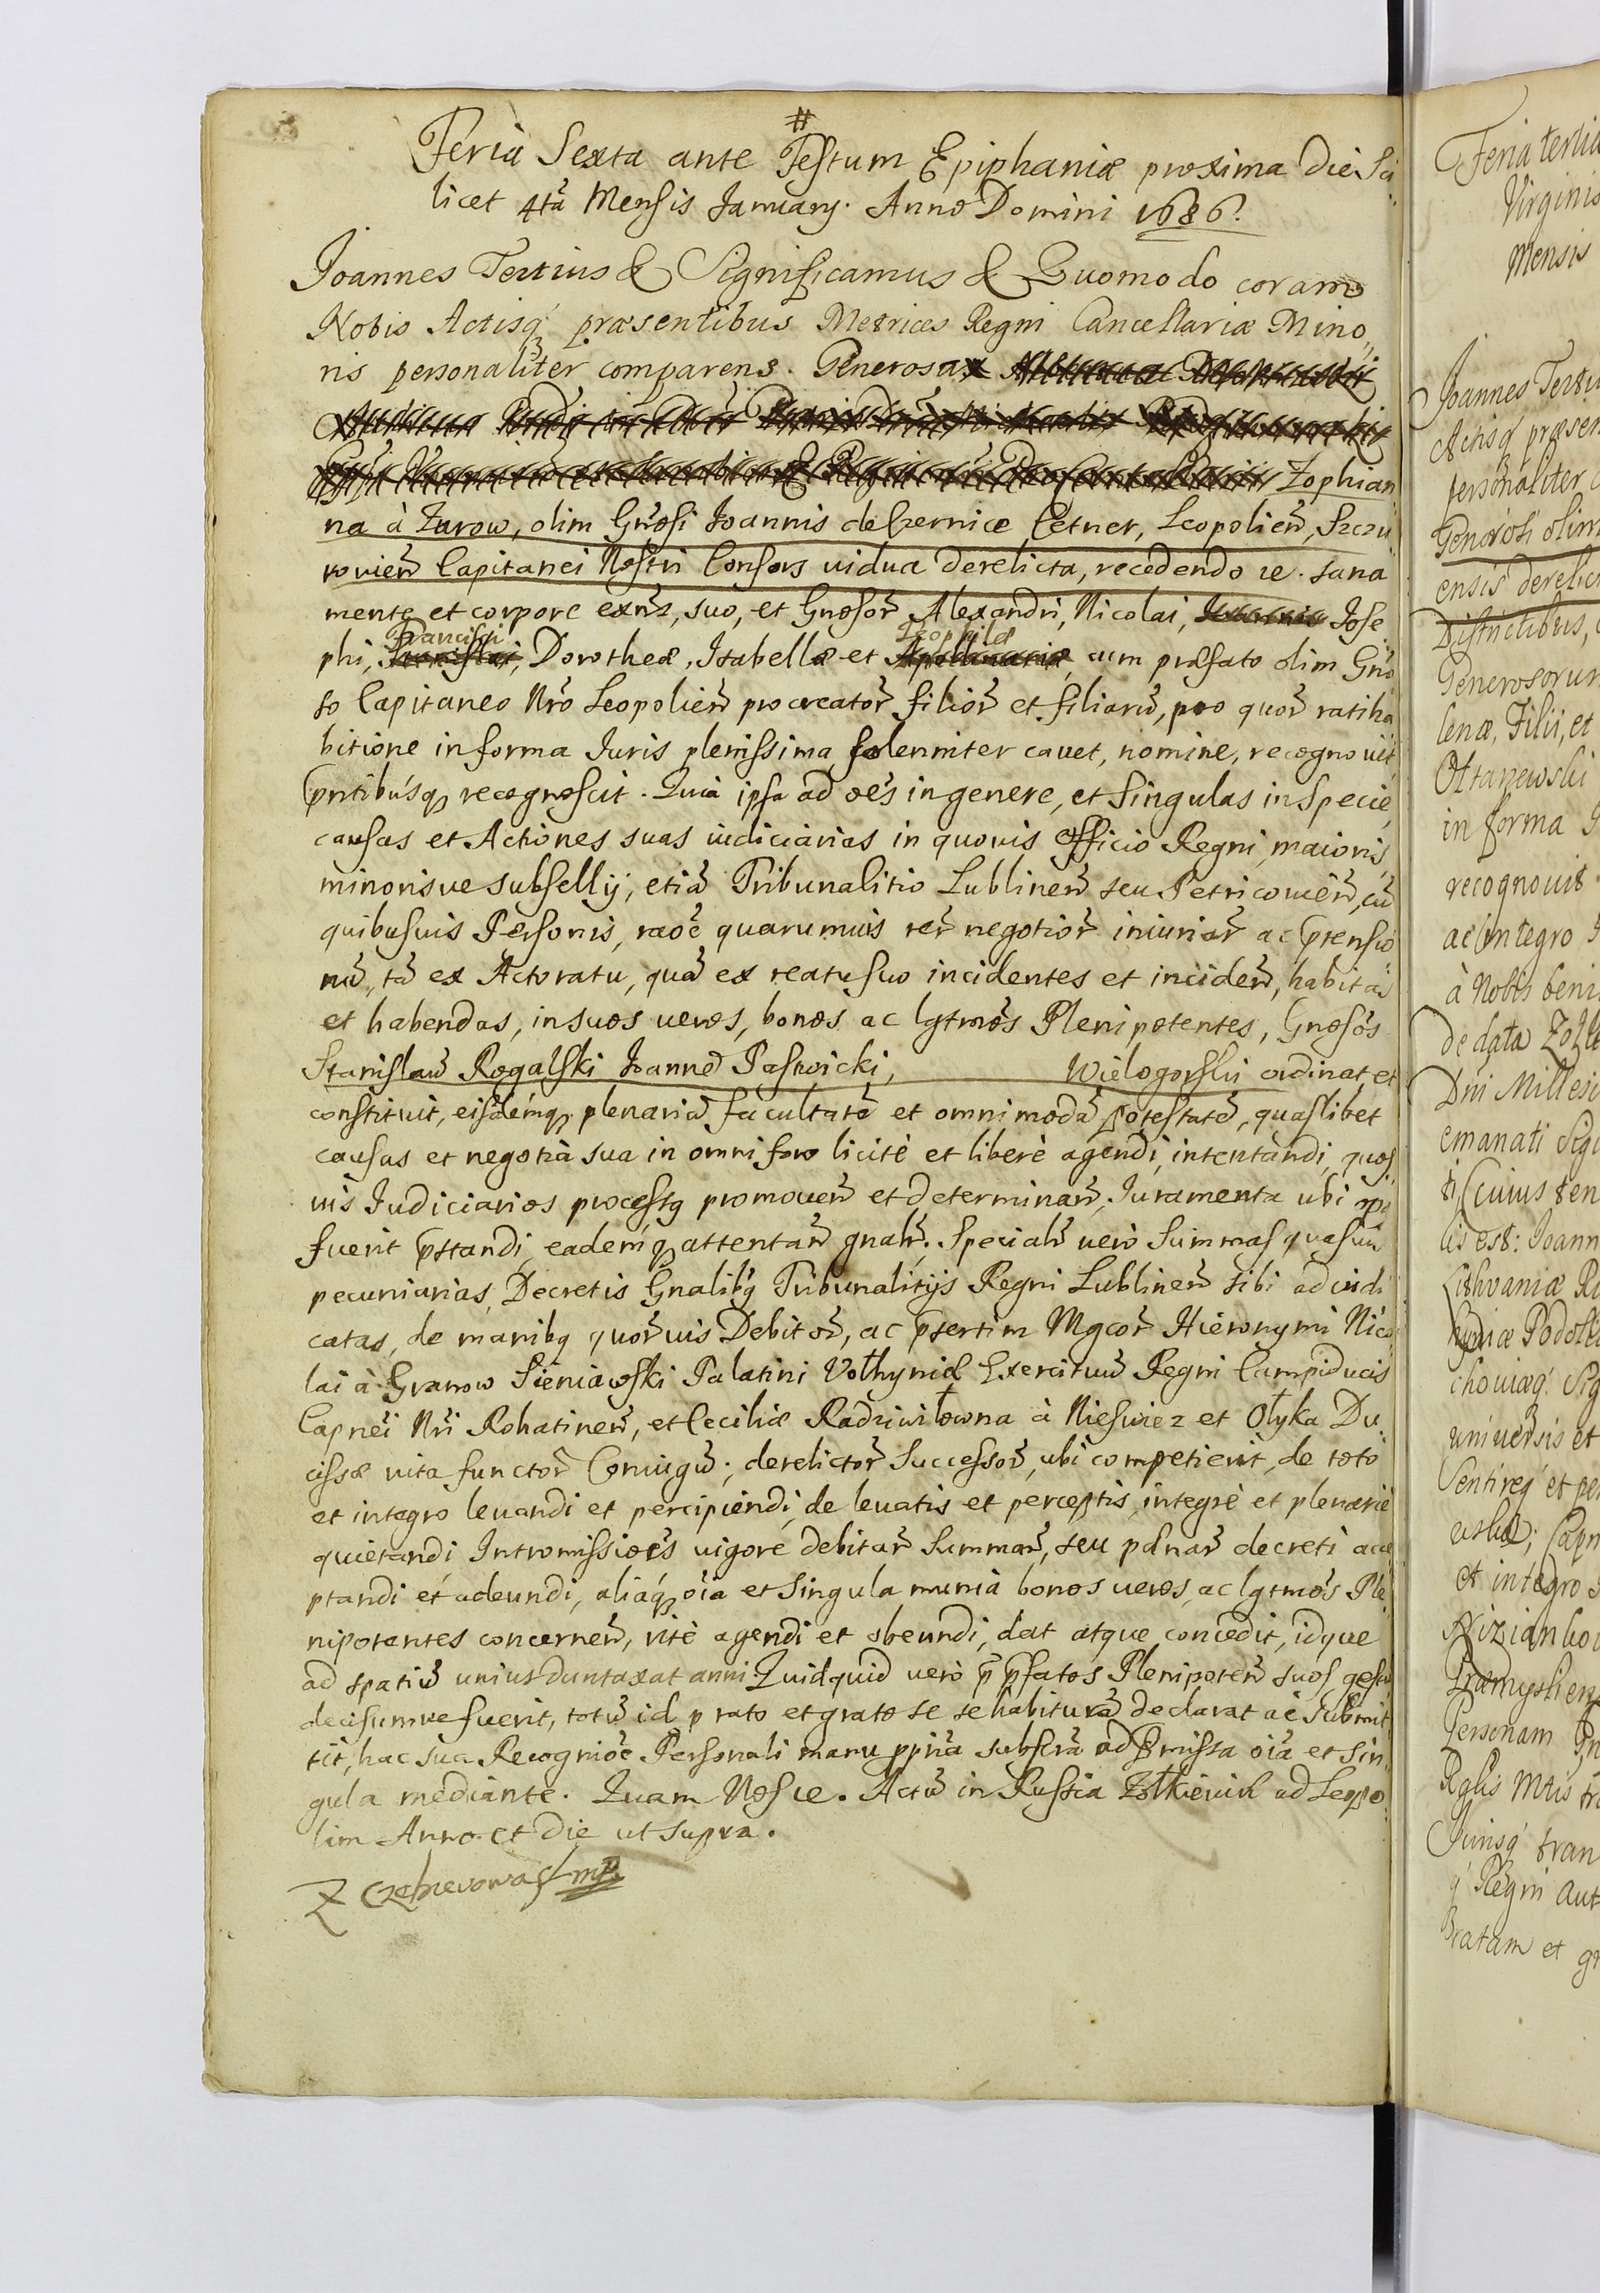 #
Feria Sexta ante Festum Epiphaniæ proxima die Sci
licet 4tã Mensis January. Anno Domini 1686.
Joannes Tertius & Significamus & Quomodo coram
Nobis Actisq́ præsentibus Metrices Regni Cancellariæ Mino„
ris personaliter comparens. Generosa
Zophian
na à Zurow, olim Gnrosi Joannis de Czernice Cetner, Leopolien̄, Szczu
rowien̄ Capitanei Nostri Consors vidua derelicta, recedendo re. sana
mente et corpore exñs, suo, et Gnosor̄ Alexandri, Nicolai, Jose
Francisci Teophilæ
phi, Stanislai, Dorotheæ, Isabellæ et Apollinariæ, cum præfato olim Gño
so Capitaneo Nrõ Leopolien̄ procreator̄ filior̄ et filiarũ, pro quor̄ ratiha
bitione in forma Juris plenissima solenniter cavet, nomine, recognovit
p̄ntibusq; recognoscit. Quia ipsa ad oẽs in genere, et Singulas in Specie,
causas et Actiones suas iudiciarias in quovis Officio Regni, maioris,
minorisve subsellij, etiã Tribunalitio Lublinen̄ seu Petricovien̄, cũ
quibusvis Personis, raõe quarumvis rer̄ negotior̄ iniuriar̄ ac p̄tensio
nũ, tã ex Actoratu, quã ex reatu suo incidentes et inciden̄, habitas
et habendas, in suos veros, bonos ac lgtmõs Plenipotentes, Gnosõs
Stanislaũ Rogalski Joannẽ Paswicki, Wielogorski ordinat, et
constituit, eisdemq; plenariã facultatẽ et omnimodã potestatẽ, quaslibet
causas et negotia sua in omni foro licitè et liberè agendi, intentandi, quos
vis Judiciarios processq promoven̄ et determinan̄, Juramenta ubi
fuerit p̄standi, eademq; attentan̄ gnalr̄. Specialr̄ verò Summas quasvis
pecuniarias, Decretis Gnalibq Tribunalitijs Regni Lublinen̄ sibi adiudi
catas, de manibq quor̄vis Debitor̄, ac p̄sertim Mgcor̄ Hieronymi Nico
lai à Granow Sieniawski Palatini Volhyniæ Exercituũ Regni Campiducis
Capnei Nri Rohatinen̄, et Ceciliæ Radziwiłowna à Nieswiez et Ołyka Du
cissæ vita functor̄ Coniugũ, derelictor̄ Successor̄, ubi competierit, de toto
et integro levandi et percipiendi, de levatis et perceptis, integrè et plenariè
quietandi Intromissiões vigore debitar̄ Summar̄, seu pdnar̄ decreti acce
ptandi et adeundi, aliaq; oĩa et Singula munia bonos veros, ac lgtmos Ple
nipotentes concernen̄, ritè agendi et obeundi, dat atque concedit, idque
ad spatiũ unius duntaxat anni Quidquid verò p̄ p̄fatos Plenipoten̄ suos gestũ
decisumve fuerit, totũ id p rato et grato se se habiturã declarat ac Submit
tit, hac sua Recogniõe Personali manu ppria subscra ad p̄missa oĩa et Sin
gula mediante. Quam Nosce. Actũ in Russia Zołkieviæ ad Leopo
lim Anno et die ut supra.
Z Czetnerowa mp.
Feria tertia
Virginis
Mensis
Joannes Tertiu
Actisq́ præsen
personaliter c
Generosi olim
ensis derelict
Districtibus,
Generosorum
lenæ, Filii, et
Ottanewski
in forma J
recognovit
ac integro
à Nobis beni
de data Zolk
Dni Millesi
emanati Sigi
ti Cuius ten
lis est: Joann
Lithvaniæ Ru
hyniæ Podol
choviæq́. Sig
universis et
Sentireq́ et pe
et integro
Personam
Rglis Mtis tr
Jurisq́ tran
q́ Regni Aut
gratam et gr